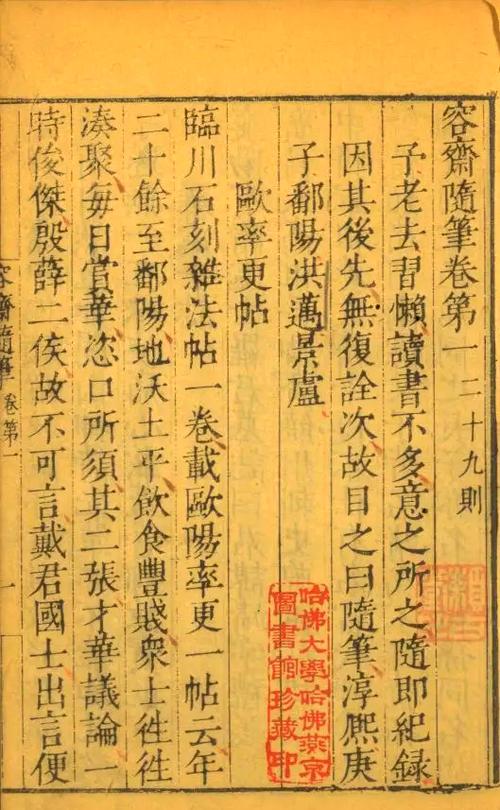 容齋隨筆卷第一 二十九則
予老去習懶讀書不多意之所之隨即紀録
因其後先無復詮次故目之曰隨筆淳熙庚
子鄱陽洪邁景盧
歐率更帖
臨川石刻雜法帖一卷載歐陽率更一帖云年
二十餘至鄱陽地沃土平飲食豐賤衆士徃徃
湊聚每日賞華恣口所須其二張才華議論一
時俊傑殷薛二侯故不可言戴君國士出言便
容齋隨筆 卷第一 一
哈佛大學哈佛燕京
圖書館珍藏印